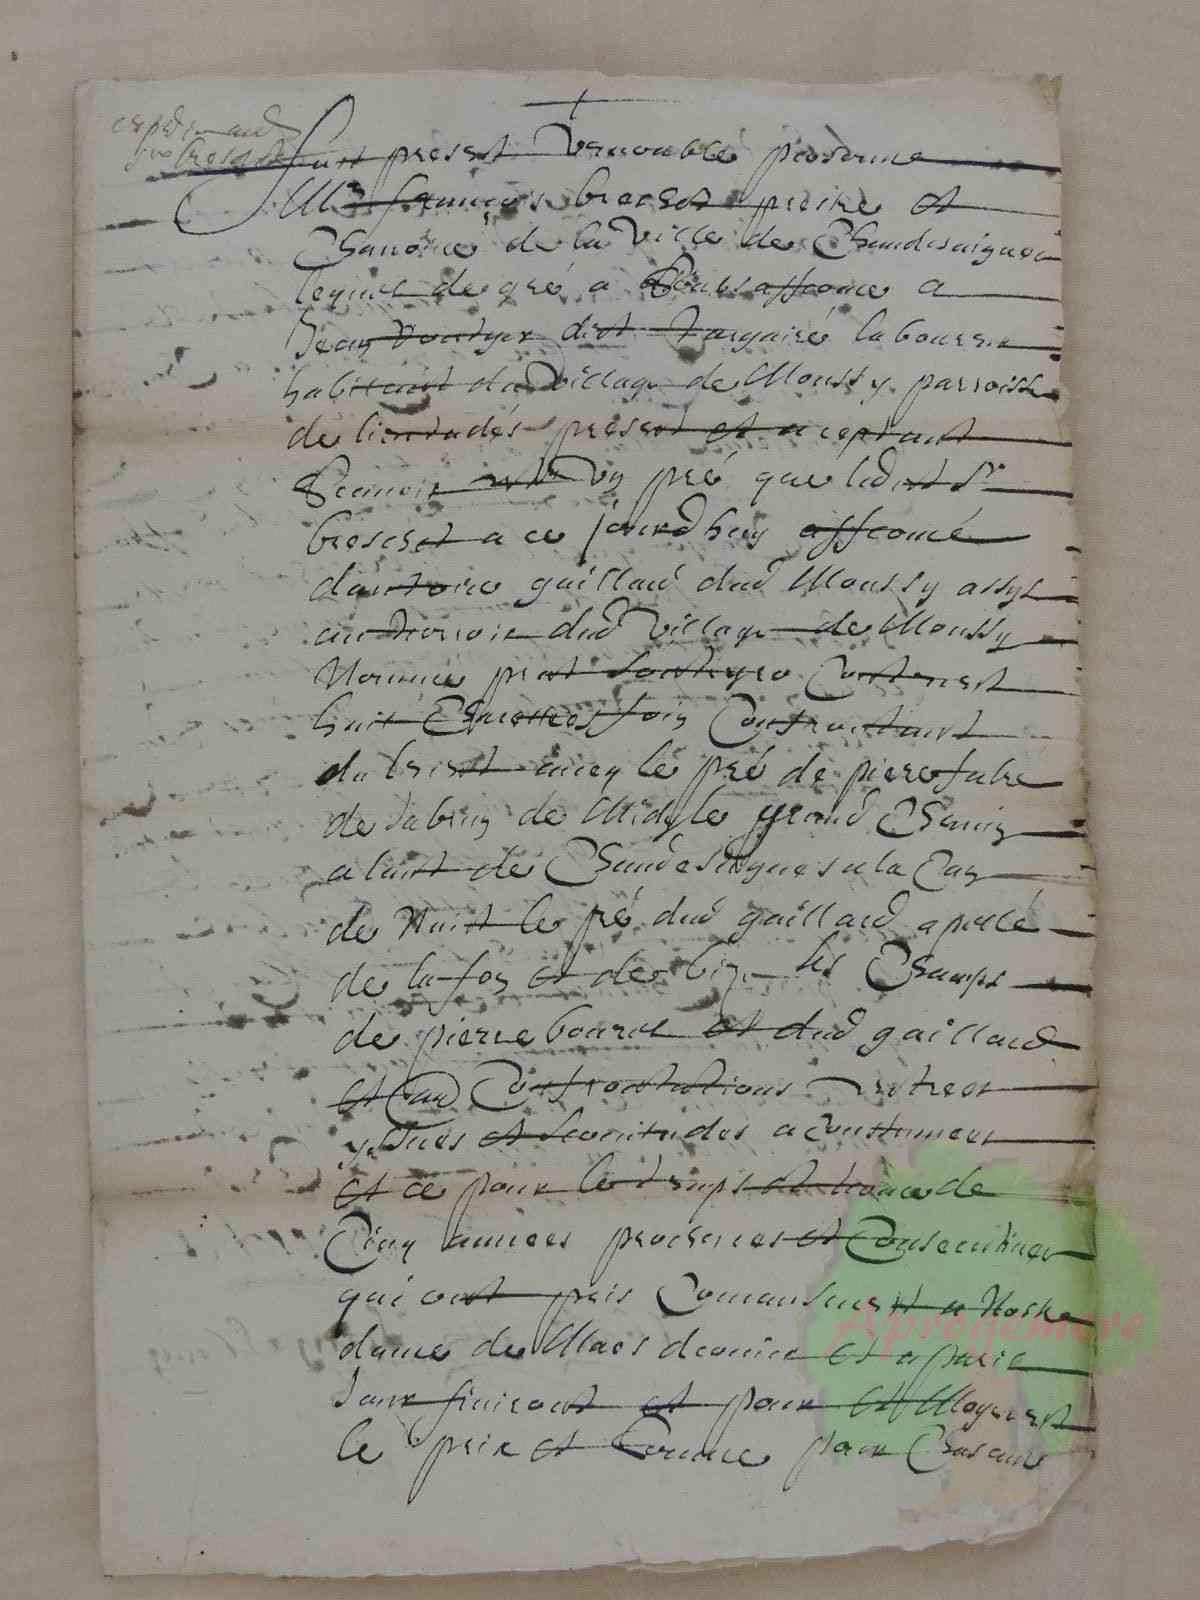 expedie aud
Sr breschet
Fust present venerable personne
Mre françois breschet prestre et
Chanoine de la Ville de Chaudesaigues
lequel de gré a Soubsafferme a
Jean dict laboureur
habittant du Village de Moussy parroisse
de lieutadés present et aceptant
Scavoir Un pré que ledict Sr
breschet a ce jourdhuy affermé
dantoine gaillard dud Moussy assys
au terroir dud Village de Moussy
Nommé prat Contenant
huit Charettes foin Confrontant
du levant avecq le pré de pierre
de de Midy le grand Chemin
alant de Chaudesaigues a la
de Nuict le pré dud gaillard apellé
de la fon et de bize les Champs
de pierre et dud gaillard
et Confrontations entrees
yssues et servitudes acoustumees
et ce pour le temps et terme de
Cinq annees prochenes et Consecutives
qui ont pris Comansment a Nostre
dame de Mars dernier et a pareil
Jour finiront et pour et Moyenent
le prix et somme pour Chascune
Aprogemere